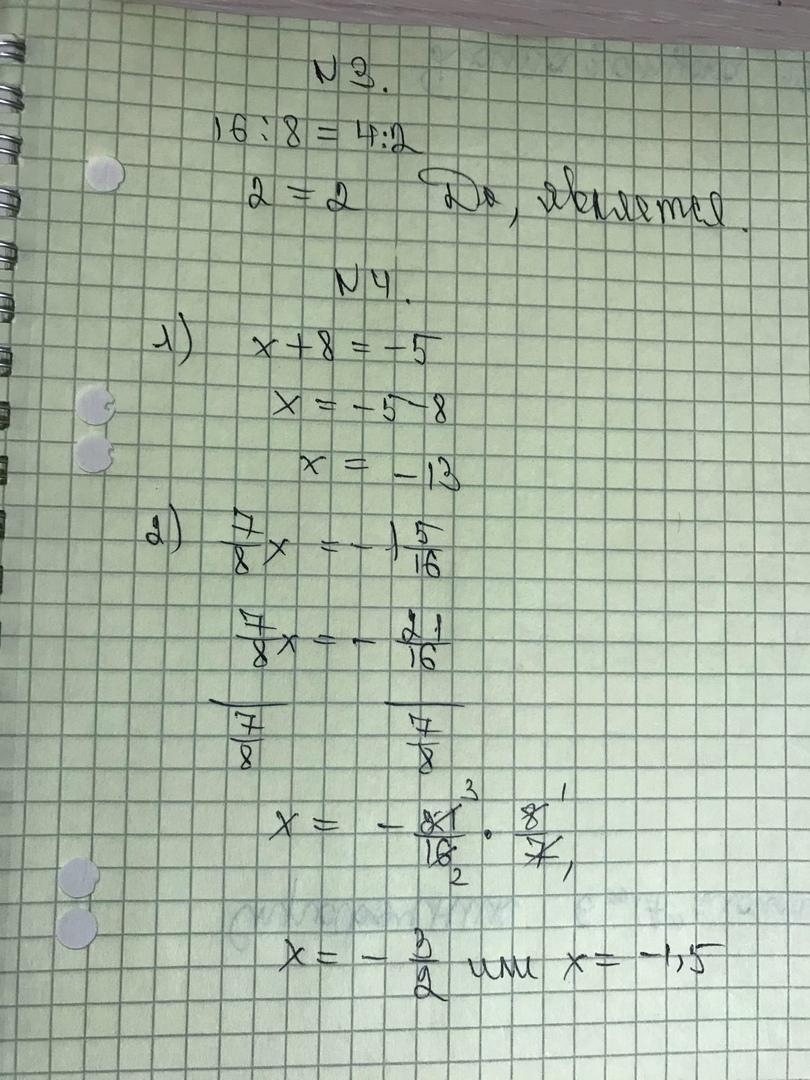 N 3.
16 : 8 = 4:2
2 = 2 Да, является.
N 4.
1) x + 8 = -5
x = -5 -8
x = -13
2) 7/8 x = - 1 5/16
7/8 x = - 21/16
7/8 7/8
x = - 21/16 · 8/7
3 1
2 1
x = - 3/2 или x = -1,5